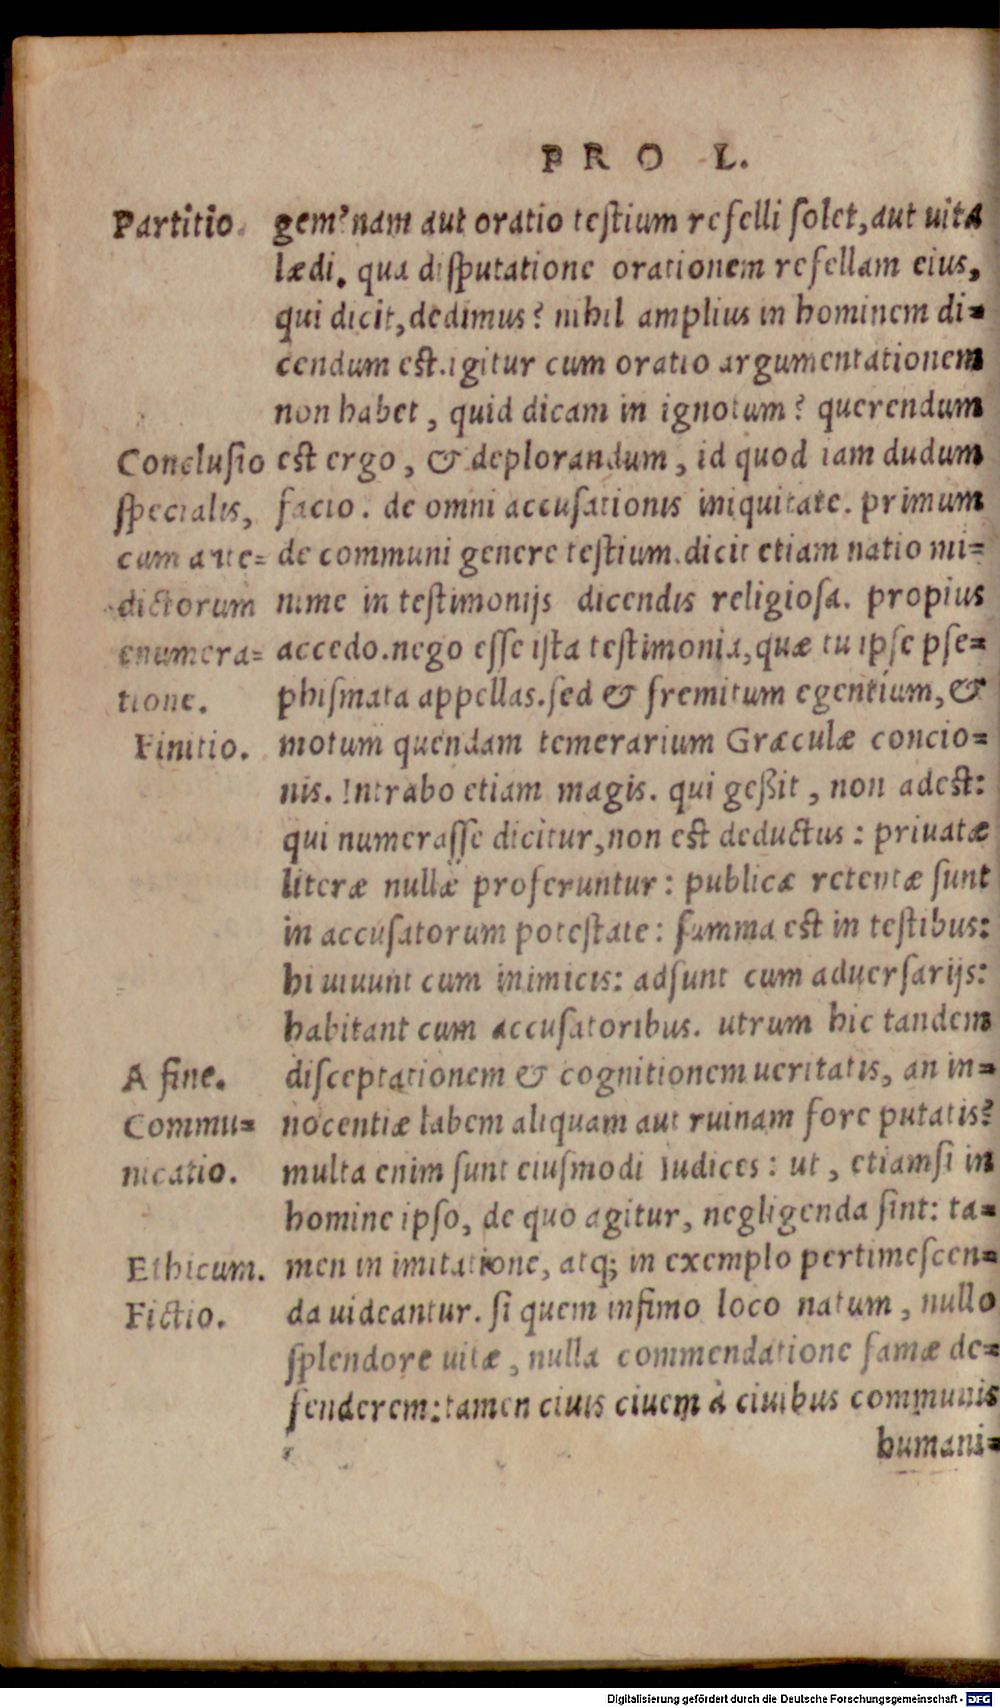 PRO L.
Partitio. gem? nam aut oratio testium refelli solet, aut uita
lædi. qua disputatione orationem refellam eius,
qui dicit, dedimus? nihil amplius in hominem di=
cendum est. igitur cum oratio argumentationem
non habet, quid dicam in ignotum? querendum
Conclusio est ergo, & deplorandum, id quod iam dudum
specialis, facio. de omni accusationis iniquitate. primum
cum ante= de communi genere testium. dicit etiam natio mi=
dictorum nime in testimonijs dicendis religiosa. propius
enumera= accedo. nego esse ista testimonia, quæ tu ipse pse=
tione. phismata appellas. sed & fremitum egentium, &
Finitio. motum quendam temerarium Græculæ concio=
nis. Intrabo etiam magis. qui geßit, non adest:
qui numerasse dicitur, non est deductus: priuatæ
literæ nullæ proferuntur: publicæ retentæ sunt
in accusatorum potestate: summa est in testibus:
hi uiuunt cum inimicis: adsunt cum aduersarijs:
habitant cum accusatoribus. utrum hic tandem
A fine. disceptationem & cognitionem ueritatis, an in=
Commu= nocentiæ labem aliquam aut ruinam fore putatis?
nicatio. multa enim sunt eiusmodi Iudices: ut, etiamsi in
homine ipso, de quo agitur, negligenda sint: ta=
Ethicum. men in imitatione, atq; in exemplo pertimescen=
Fictio. da uideantur. si quem infimo loco natum, nullo
splendore uitæ, nulla commendatione famæ de=
fenderem: tamen ciuis ciuem à ciuibus communis
humani=
Digitalisierung gefördert durch die Deutsche Forschungsgemeinschaft - DFG